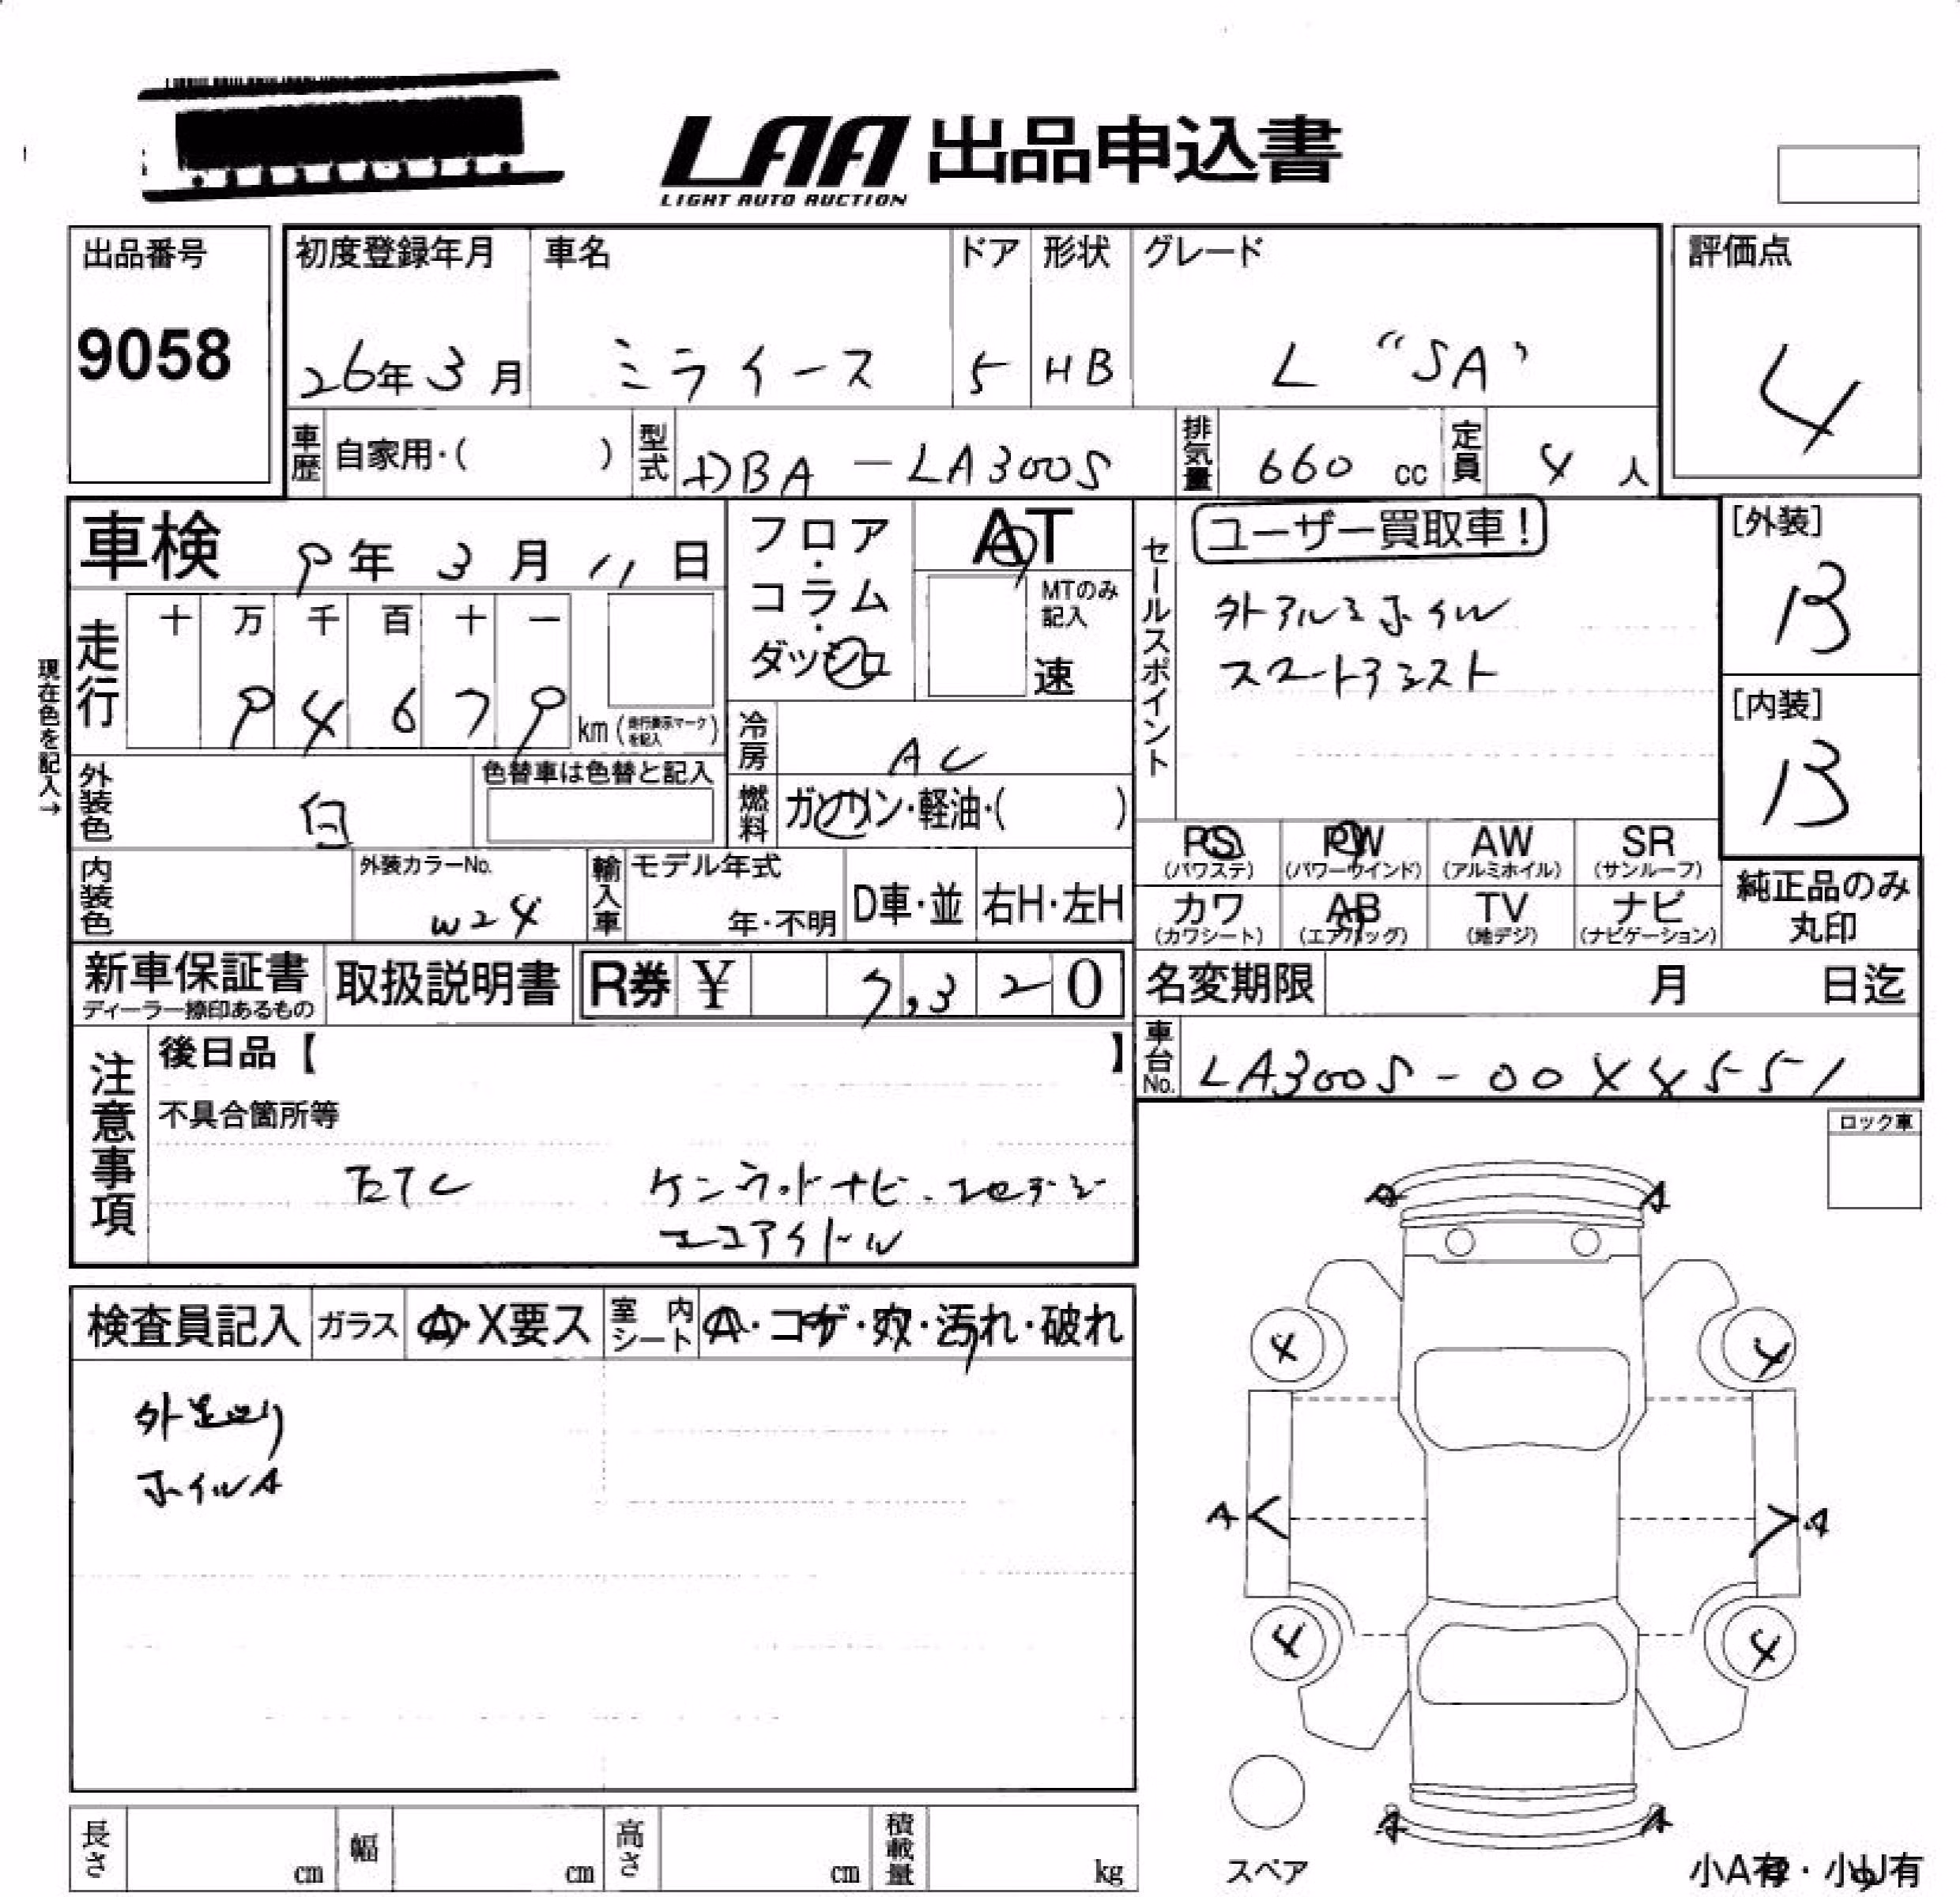 LAA 出品申込書
LIGHT AUTO AUCTION
出品番号
9058
初度登録年月
26年3月
車名
ミライース
ドア
5
形状
HB
グレード
L "SA"
評価点
4
車歴 自家用・( )
型式 DBA-LA300S
排気量 660 cc
定員 4人
車検 9年3月11日
走行
十 万 千 百 十 一
9 4 6 7 9 km
(走行表示マークを記入)
現在色を記入→
外装色 白
色替車は色替と記入
内装色
外装カラーNo.
W24
フロア・コラム・ダッシュ
AT
MTのみ記入
速
冷房 AC
燃料 ガソリン・軽油・( )
輸入車
モデル年式
年・不明
D車・並
右H・左H
セールスポイント
ユーザー買取車!
外アルミホイル
スマートアシスト
[外装]
B
[内装]
B
PS (パワステ)
PW (パワーウインド)
AW (アルミホイル)
SR (サンルーフ)
カワ (カワシート)
AB (エアバッグ)
TV (地デジ)
ナビ (ナビゲーション)
純正品のみ丸印
新車保証書
ディーラー捺印あるもの
取扱説明書
R券 ¥ 7,320
名変期限 月 日迄
車台No. LA300S-00XX551
注意事項
後日品【 】
不具合箇所等
ETC
ケンウッドナビ・フルセグ
エコアイドル
ロック車
検査員記入
ガラス A・X要ス
室内シート A・コゲ・穴・汚れ・破れ
外足回り
ホイルA
A A
4 4
A A
4 4
A A
スペア
小A有・小U有
長さ cm
幅 cm
高さ cm
積載量 kg